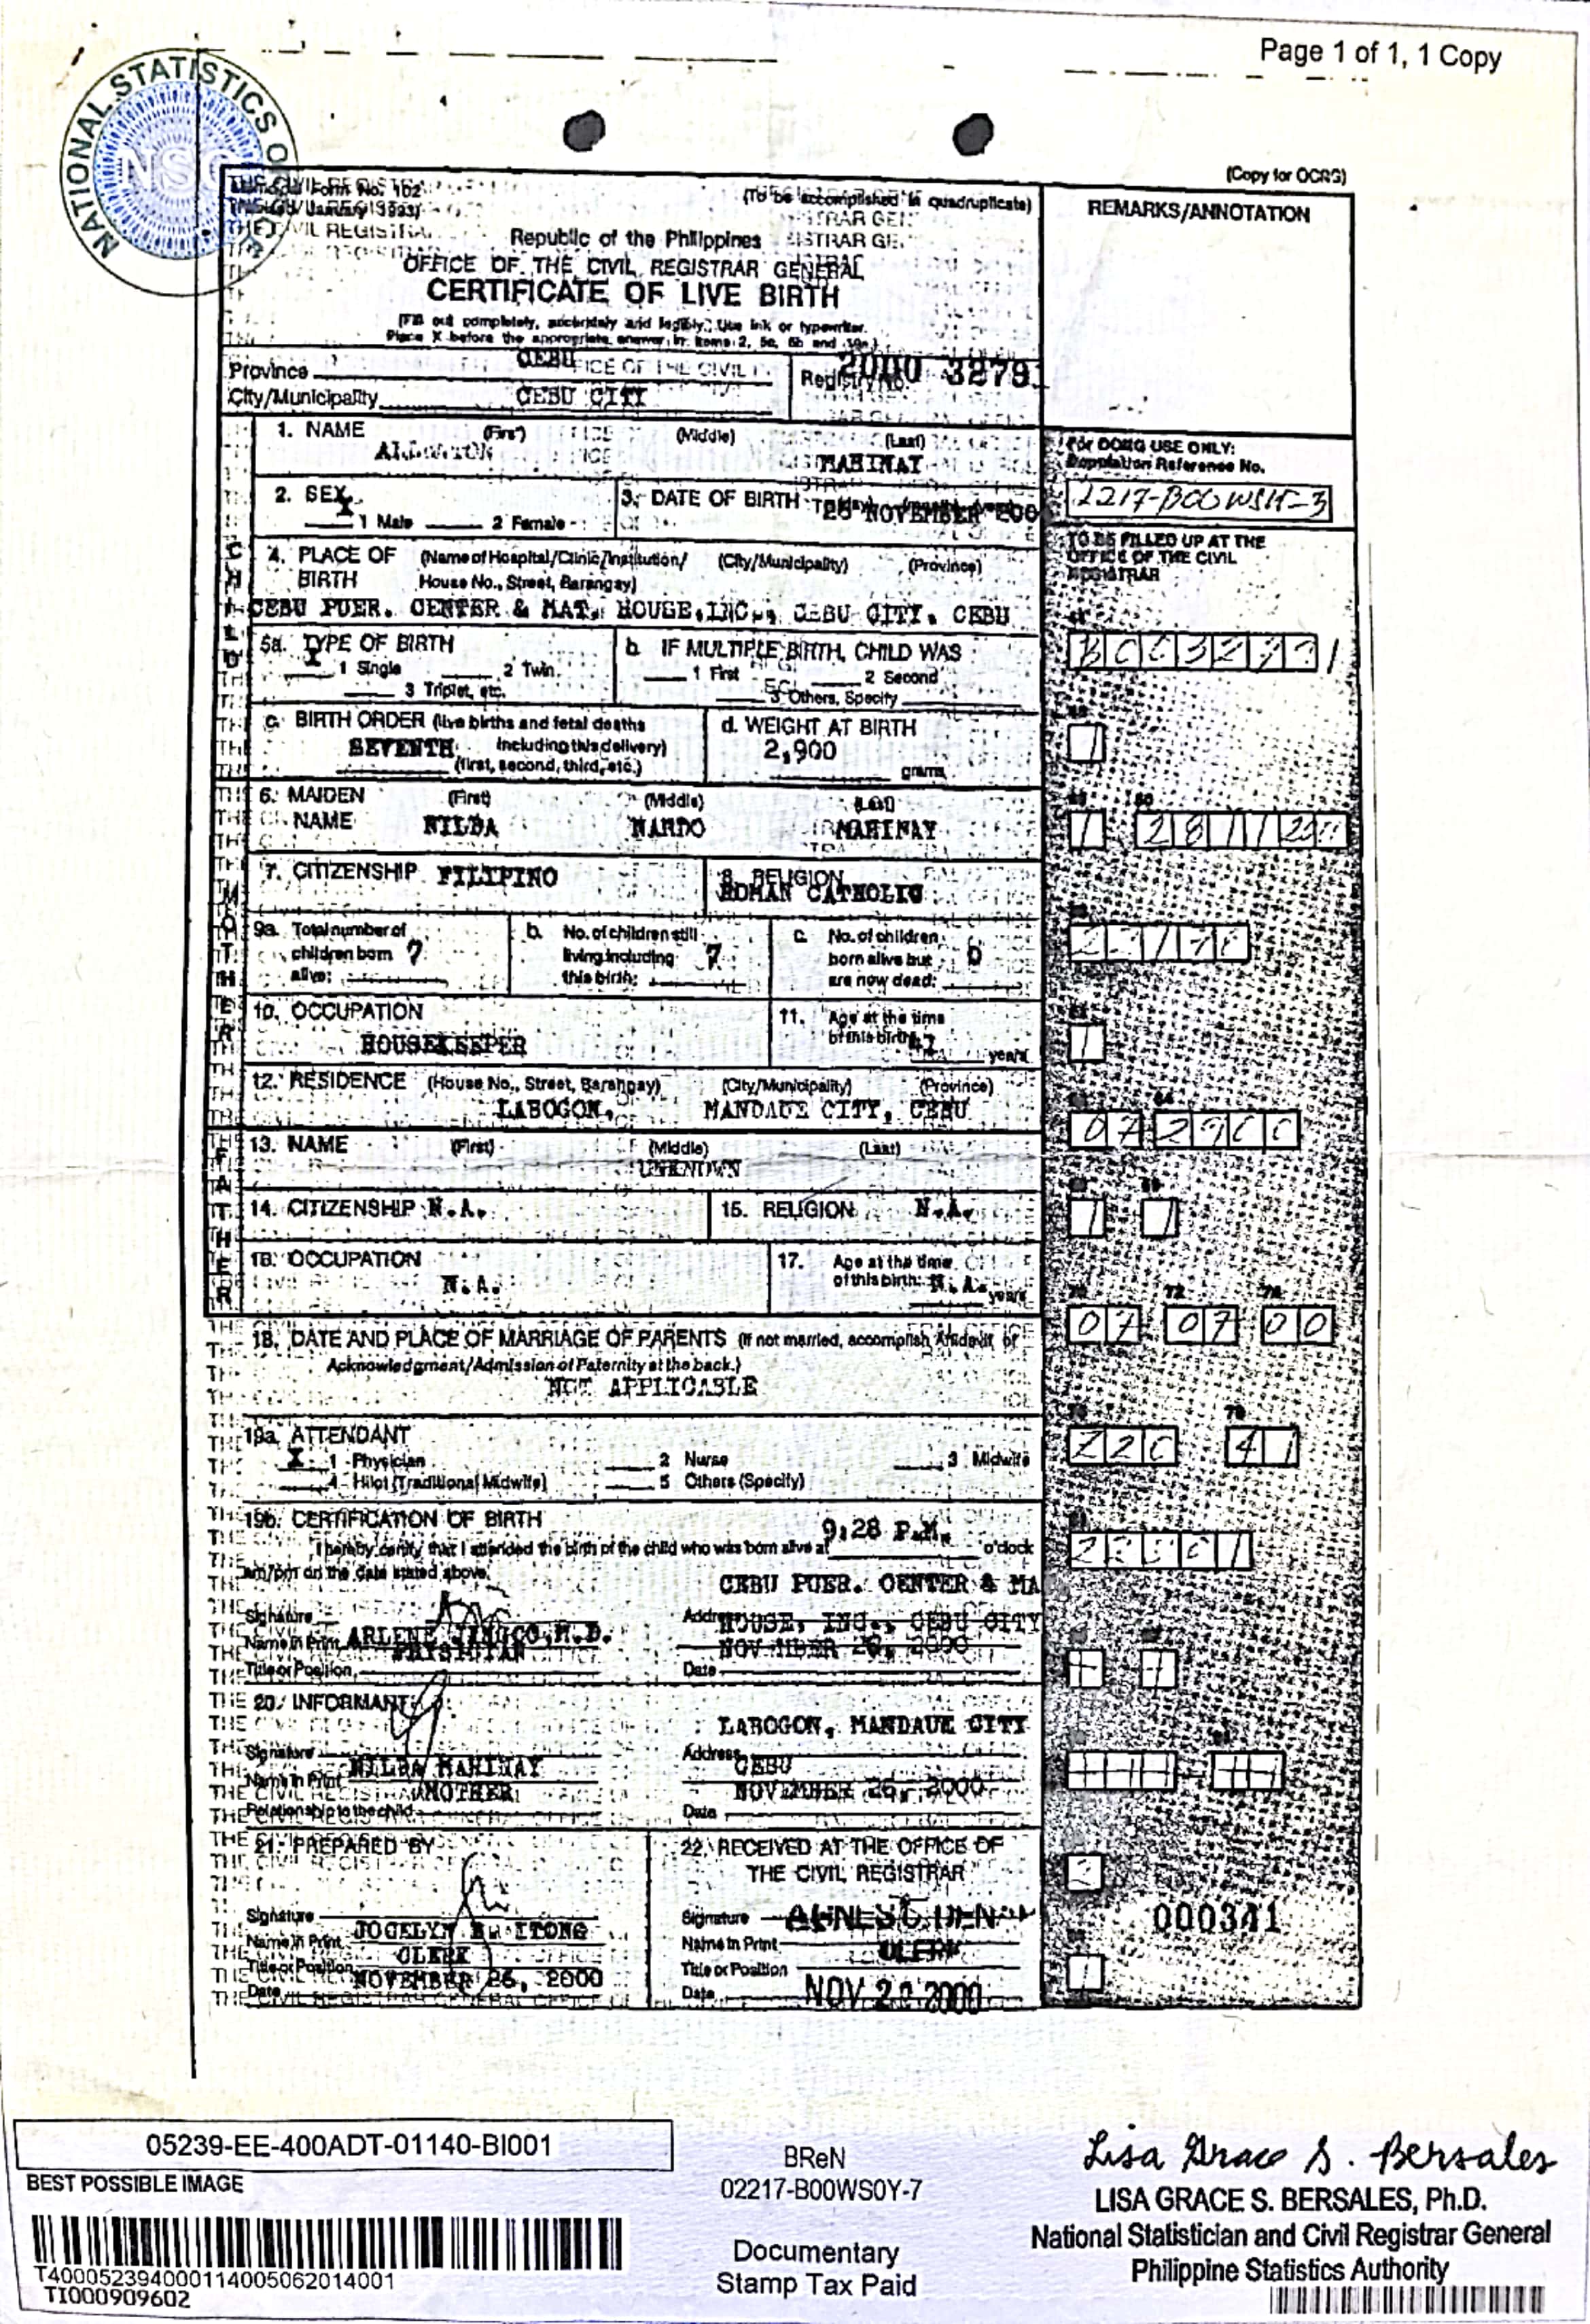 Page 1 of 1, 1 Copy
NATIONAL STATISTICS
(Copy for OCRG)
Form No. 102
January 1993)
(To be accomplished in quadruplicate)
REMARKS/ANNOTATION
Republic of the Philippines
OFFICE OF THE CIVIL REGISTRAR GENERAL
CERTIFICATE OF LIVE BIRTH
(Fill out completely, accurately and legibly. Use ink or typewriter.
Place X before the appropriate answer in items 2, 5a, 5b and 19a.)
Province CEBU
Registry No. 2000 32791
City/Municipality CEBU CITY
1. NAME (First) (Middle) (Last)
MAHINAY
For OCRG USE ONLY:
Population Reference No.
2. SEX
X 1 Male 2 Female
3. DATE OF BIRTH
NOVEMBER
TO BE FILLED UP AT THE
OFFICE OF THE CIVIL
REGISTRAR
4. PLACE OF BIRTH (Name of Hospital/Clinic/Institution/ (City/Municipality) (Province)
House No., Street, Barangay)
CEBU PUER. CENTER & MAT. HOUSE, INC., CEBU CITY, CEBU
5a. TYPE OF BIRTH
X 1 Single 2 Twin
3 Triplet, etc.
b. IF MULTIPLE BIRTH, CHILD WAS
1 First 2 Second
3 Others, Specify
c. BIRTH ORDER (live births and fetal deaths
SEVENTH including this delivery)
(first, second, third, etc.)
d. WEIGHT AT BIRTH
2,900
grams
6. MAIDEN NAME (First) (Middle) (Last)
NILDA NARDO MAHINAY
7. CITIZENSHIP FILIPINO
8. RELIGION
ROMAN CATHOLIC
9a. Total number of
children born 7
alive:
b. No. of children still
living including 7
this birth:
c. No. of children
born alive but 0
are now dead:
10. OCCUPATION
HOUSEKEEPER
11. Age at the time
of this birth:
years
12. RESIDENCE (House No., Street, Barangay) (City/Municipality) (Province)
LABOGON, MANDAUE CITY, CEBU
072900
13. NAME (First) (Middle) (Last)
UNKNOWN
14. CITIZENSHIP N.A.
15. RELIGION N.A.
16. OCCUPATION
N.A.
17. Age at the time
of this birth: N.A. years
07 07 00
18. DATE AND PLACE OF MARRIAGE OF PARENTS (If not married, accomplish Affidavit of
Acknowledgment/Admission of Paternity at the back.)
NOT APPLICABLE
19a. ATTENDANT
X 1 Physician 2 Nurse 3 Midwife
4 Hilot (Traditional Midwife) 5 Others (Specify)
220 41
19b. CERTIFICATION OF BIRTH
I hereby certify that I attended the birth of the child who was born alive at 9:28 P.M. o'clock
am/pm on the date stated above.
CEBU PUER. CENTER & MA
Signature
Address HOUSE, INC., CEBU CITY
Name in Print ARLENE M.D.
NOVEMBER 26, 2000
PHYSICIAN
Title or Position
Date
20. INFORMANT
LABOGON, MANDAUE CITY
Signature
Address CEBU
Name in Print NILDA MAHINAY
MOTHER
NOVEMBER 26, 2000
Relationship to the child
Date
21. PREPARED BY
22. RECEIVED AT THE OFFICE OF
THE CIVIL REGISTRAR
Signature
Name in Print JOCELYN
CLERK
Title or Position
Date NOVEMBER 26, 2000
Signature
Name in Print
CLERK
Title or Position
Date NOV 2000
000341
05239-EE-400ADT-01140-BI001
BEST POSSIBLE IMAGE
T400052394000114005062014001
TI000909602
BReN
02217-B00WS0Y-7
Documentary
Stamp Tax Paid
Lisa Grace S. Bersales
LISA GRACE S. BERSALES, Ph.D.
National Statistician and Civil Registrar General
Philippine Statistics Authority